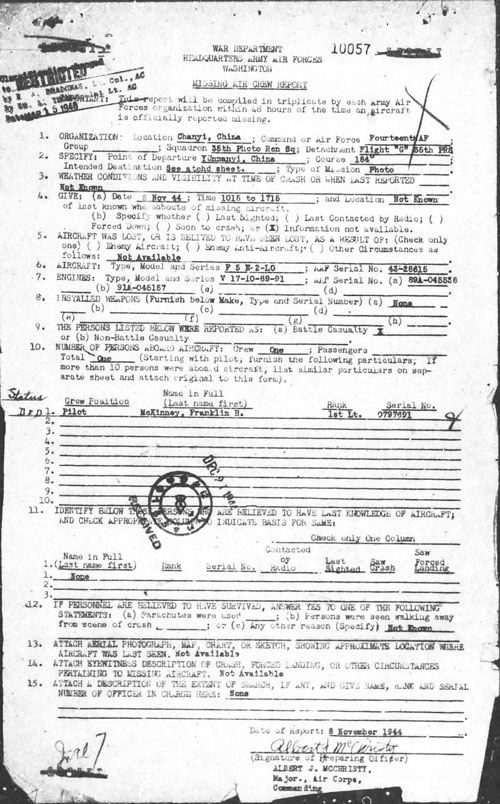 10057
WAR DEPARTMENT
HEADQUARTERS ARMY AIR FORCES
WASHINGTON
MISSING AIR CREW REPORT
RESTRICTED
IMPORTANT: This report will be compiled in triplicate by each Army Air
Forces organization within 48 hours of the time an aircraft
is officially reported missing.
1. ORGANIZATION: Location Chanyi, China ; Command or Air Force Fourteenth AF
Group ; Squadron 35th Photo Rcn Sq; Detachment Flight "G" 35th PRS
2. SPECIFY: Point of Departure Yunnanyi, China ; Course 184°
Intended Destination See atchd sheet. ; Type of Mission Photo
3. WEATHER CONDITIONS AND VISIBILITY AT TIME OF CRASH OR WHEN LAST REPORTED
Not Known
4. GIVE: (a) Date 5 Nov 44 ; Time 1015 to 1715 ; and Location Not Known
of last known whereabouts of missing aircraft.
(b) Specify whether ( ) Last Sighted; ( ) Last Contacted by Radio; ( )
Forced Down; ( ) Seen to crash; or (X) Information not available.
5. AIRCRAFT WAS LOST, OR IS BELIEVED TO HAVE BEEN LOST, AS A RESULT OF: (Check only
one) ( ) Enemy Aircraft; ( ) Enemy Anti-Aircraft; ( ) Other Circumstances as
follows: Not Available
6. AIRCRAFT: Type, Model and Series F 5 E-2-LO ; AAF Serial No. 43-28615
7. ENGINES: Type, Model and Series V 17-10-89-91 ; AAF Serial No. (a) 89A-045538
(b) 91A-045157 (c) (d)
8. INSTALLED WEAPONS (Furnish below Make, Type and Serial Number) (a) None
(b) (c) (d)
(e) (f) (g) (h)
9. THE PERSONS LISTED BELOW WERE REPORTED AS: (a) Battle Casualty X
or (b) Non-Battle Casualty
10. NUMBER OF PERSONS ABOARD AIRCRAFT: Crew One ; Passengers
Total One (Starting with pilot, furnish the following particulars; If
more than 10 persons were aboard aircraft, list similar particulars on sep-
arate sheet and attach original to this form).
Status
Name in Full
Crew Position (Last name first) Rank Serial No.
DED 1. Pilot McKinney, Franklin H. 1st Lt. 0797691
2.
3.
4.
5.
6.
7.
8.
9.
10.
11. IDENTIFY BELOW THOSE PERSONS WHO ARE BELIEVED TO HAVE LAST KNOWLEDGE OF AIRCRAFT;
AND CHECK APPROPRIATE COLUMN TO INDICATE BASIS FOR SAME:
Check only One Column
Name in Full (Last name first) Rank Serial No. Contacted by Radio Last Sighted Saw Crash Saw Forced Landing
1. None
2.
3.
12. IF PERSONNEL ARE BELIEVED TO HAVE SURVIVED, ANSWER YES TO ONE OF THE FOLLOWING
STATEMENTS: (a) Parachutes were used ; (b) Persons were seen walking away
from scene of crash ; or (c) Any other reason (Specify) Not Known
13. ATTACH AERIAL PHOTOGRAPH, MAP, CHART, OR SKETCH, SHOWING APPROXIMATE LOCATION WHERE
AIRCRAFT WAS LAST SEEN. Not Available
14. ATTACH EYEWITNESS DESCRIPTION OF CRASH, FORCED LANDING, OR OTHER CIRCUMSTANCES
PERTAINING TO MISSING AIRCRAFT. Not Available
15. ATTACH A DESCRIPTION OF THE EXTENT OF SEARCH, IF ANY, AND GIVE NAME, RANK AND SERIAL
NUMBER OF OFFICER IN CHARGE HERE: None
Date of Report: 8 November 1944
Albert J McChristy
(Signature of Preparing Officer)
ALBERT J. MCCHRISTY,
Major., Air Corps,
Commanding